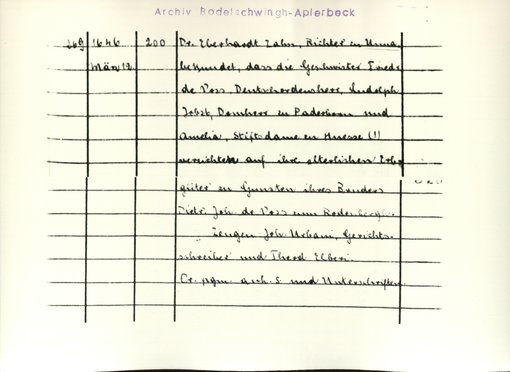 Archiv Bodelschwingh-Aplerbeck
269 1646 200 Dr. Eberhardt Zahn, Richter zu Unna
März 12. bekundet, dass die Geschwister Friedr.
de Voss, Deutschordensherr, Rudolph
Jobst, Domherr zu Paderborn und
Amelia, Stiftsdame zu Huesse (!)
verzichteten auf ihre elterlichen Erb-
güter zu Gunsten ihres Bruders
Dietr. Joh. de Voss zum Rodenberge.
Zeugen Joh. Urbani, Gerichts-
schreiber und Theod. Elberi.
Or. pgm. anh. S. und Unterschriften